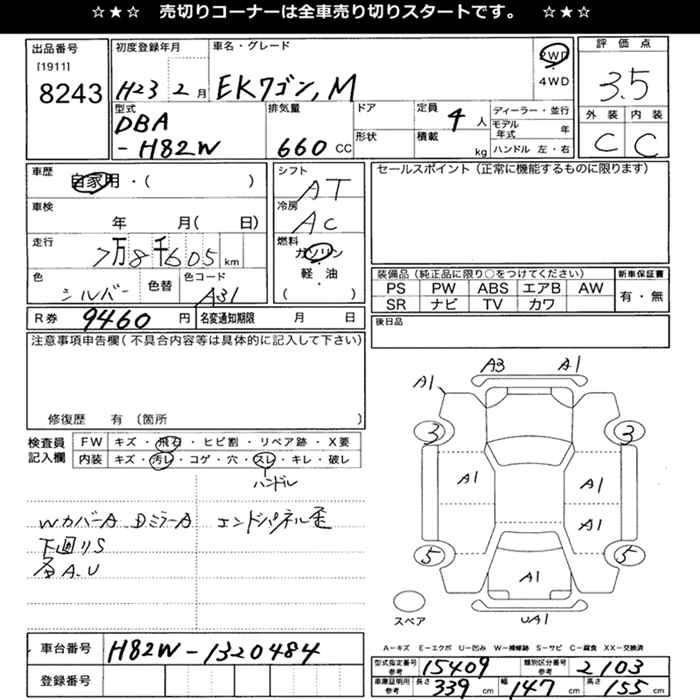 ☆★☆ 売切りコーナーは全車売り切りスタートです。 ☆★☆
出品番号
[1911]
8243
初度登録年月
H23 2月
車名・グレード
EKワゴン, M
2WD
・
4WD
評価点
3.5
外装 内装
C C
型式
DBA
-H82W
排気量
660 CC
ドア
形状
定員
4人
積載
kg
ディーラー・並行
モデル年式 年
ハンドル 左・右
車歴
自家用・( )
車検
年 月( 日)
走行
7万8千605 km
色
シルバー
色替
色コード
A31
シフト
AT
冷房
AC
燃料
ガソリン
・
軽・油
( )
セールスポイント(正常に機能するものに限ります)
装備品(純正品に限り○をつけてください)
PS PW ABS エアB AW
SR ナビ TV カワ
新車保証書
有・無
R券 9460 円
名変通知期限 月 日
後日品
注意事項申告欄(不具合内容等は具体的に記入して下さい)
修復歴 有 (箇所 )
検査員
記入欄
FW キズ・飛石・ヒビ割・リペア跡・X要
内装 キズ・汚レ・コゲ・穴・スレ・キレ・破レ
ハンドル
WカバーA DミラーA エンドパネル歪
下廻りS
各A.U
A1 A3 A1
3 3
A1 A1
A1
5 5
A1
UA1
スペア
車台番号 H82W-1320484
登録番号
A-キズ E-エクボ U-凹み W-補修跡 S-サビ C-腐食 XX-交換済
型式指定番号
参考
15409
類別区分番号
参考
2103
車庫証明用
参考
長さ 339 cm 幅 147 cm 高さ 155 cm